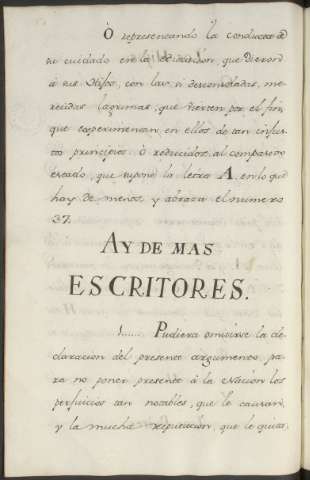 O representando la conducta de
su cuidado en la educacion, que dieron
á sus Hijos, con las, si desconsoladas, me-
recidas lagrimas, que vierten por el fin,
que experimentan en ellos de tan infus-
tos principios: ò reducidos al compasivo
estado, que supone la letra A, en lo que
hay de menos y abraza el numero
37.
AY DE MAS
ESCRITORES.
1...... Pudiera omitirse la de-
claracion del presente argumento, pa-
ra no poner presente á la Nacion los
perjuicios tan notables, que le causan,
y la mucha reputacion, que le quitan,